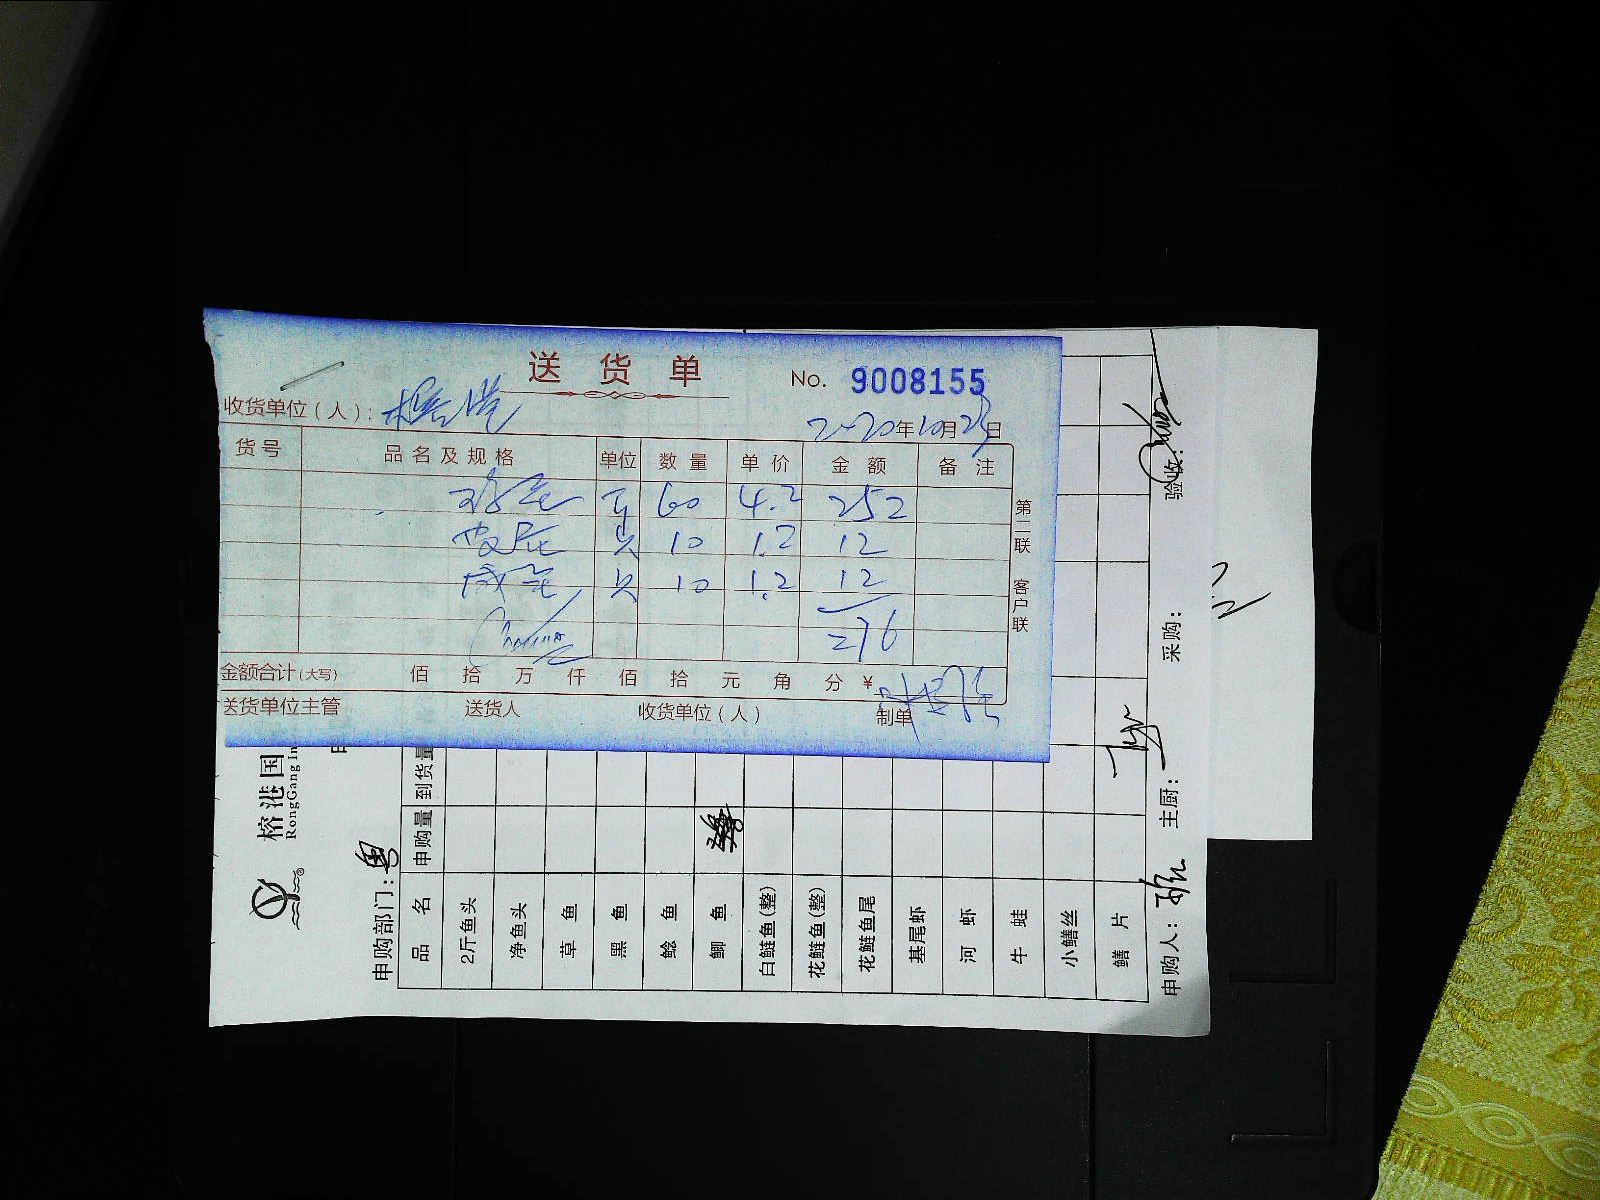 送 货 单
No. 9008155
收货单位（人）：榕港
2020年10月23日
货号 品名及规格 单位 数量 单价 金额 备注
60 4.2 252
皮蛋 只 10 1.2 12
咸蛋 只 10 1.2 12
276
金额合计(大写) 佰 拾 万 仟 佰 拾 元 角 分 ¥
送货单位主管 送货人 收货单位（人） 制单
第二联 客户联
榕港国
RongGang In
申购部门：粤
品 名 申购量 到货量
2斤鱼头
净鱼头
草 鱼
黑 鱼
鲶 鱼
鲫 鱼
白鲢鱼(整)
花鲢鱼(整)
花鲢鱼尾
基尾虾
河 虾
牛 蛙
小鳝丝
鳝 片
申购人： 主厨： 采购： 验收：